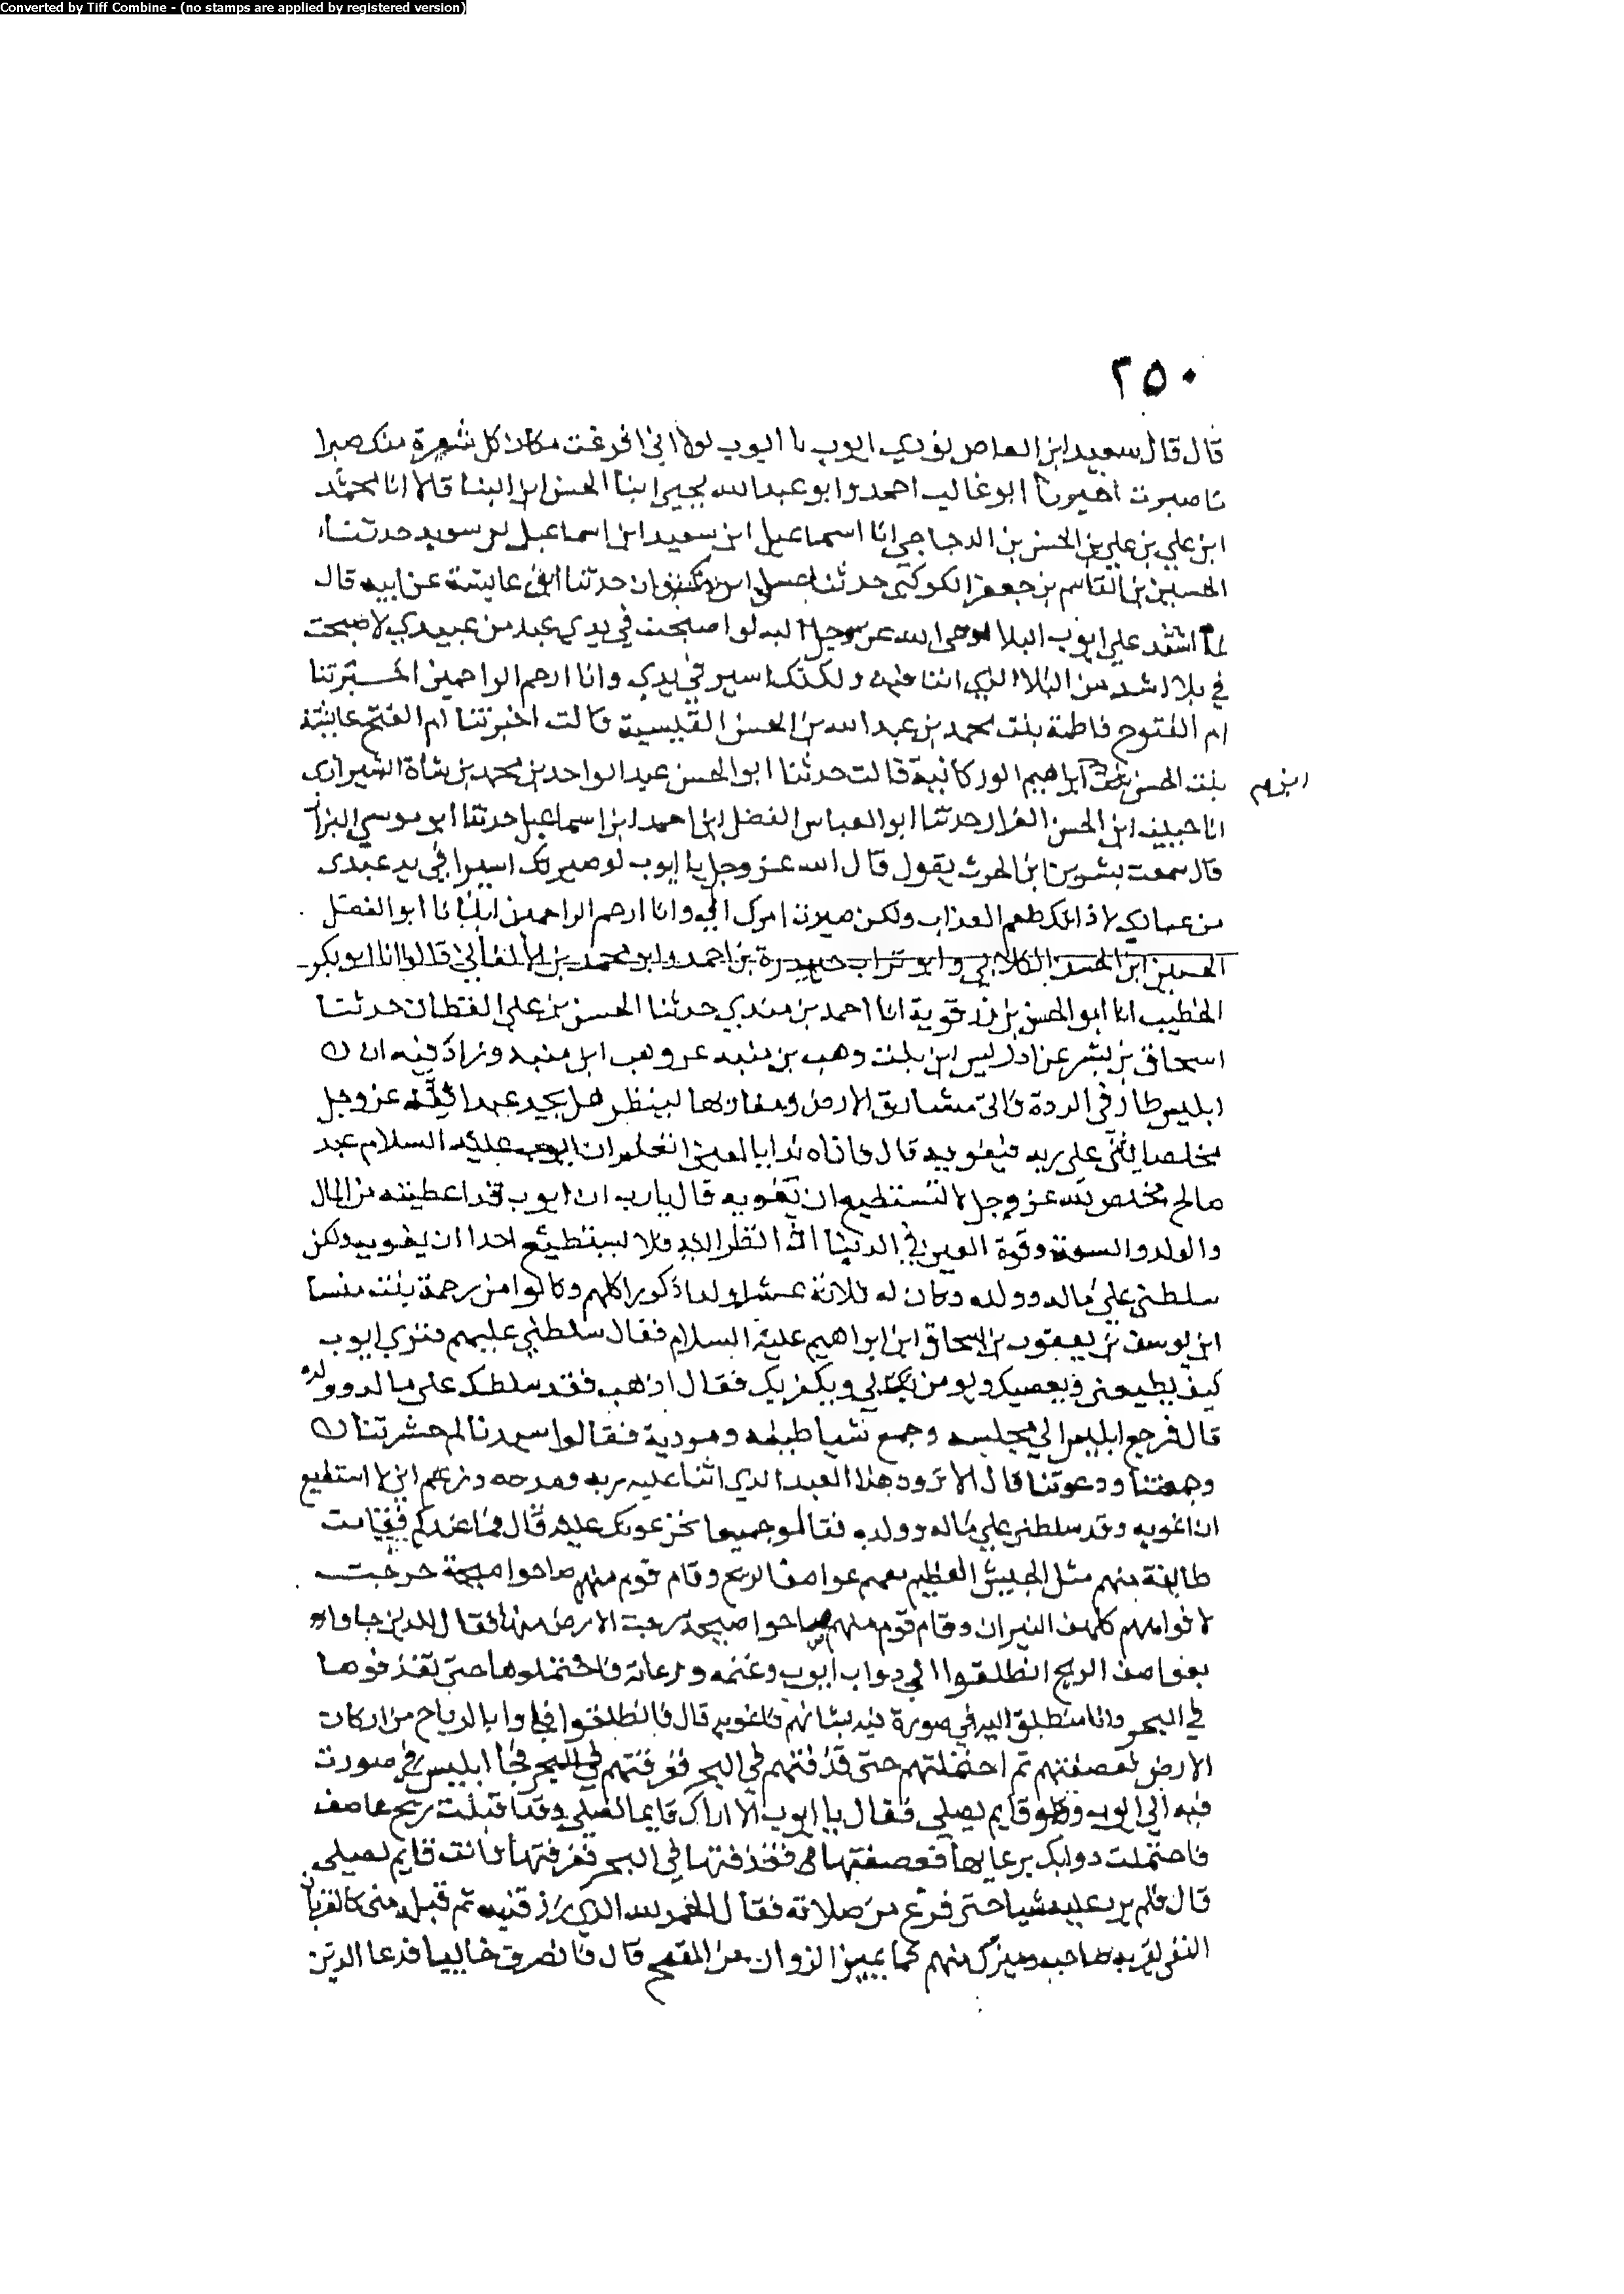 Converted by Tiff Combine - (no stamps are applied by registered version)
٢٥٠
قال قال سعيد ابن العاص نودي ايوب يا ايوب لولا اني افرغت مكان كل شعرة منك صبرا
ما صبرت اخبرنا ابو غالب احمد وابو عبد الله يحيى ابنا الحسن ابن البنا قالا انا محمد
ابن علي بن علي بن الحسن بن الدجاجي انا اسماعيل ابن سعيد ابن اسماعيل بن سويد حدثنا
الحسين بن القاسم بن جعفر الكوكبي حدثنا عسل ابن ذكوان حدثنا ابن عايشة عن ابيه قال
لما اشتد علي ايوب البلا اوحى الله عز وجل اليه لو اصبحت في يدي عبد من عبيدي لاصبحت
في بلا اشد من البلا الذي انت فيه ولكنك اسير في يدي وانا ارحم الراحمين اخبرتنا
ام الفتوح فاطمة بنت محمد بن عبد الله بن الحسن القيسية قالت اخبرتنا ام الفتح عايشة
بنت الحسن بن ابراهيم الوركانية قالت حدثنا ابو الحسن عبد الواحد بن محمد بن شاة الشيرازي
ابرهم
انا حبيب ابن الحسن القزاز حدثنا ابو العباس الفضل ابن احمد ابن اسماعيل حدثنا ابو موسي البزاز
قال سمعت بشر بن الحرث يقول قال الله عز وجل يا ايوب لو صيرتك اسيرا في يد عبدي
من عبادي لاذاقك طعم العذاب ولكن صيرت امرك الي وانا ارحم الراحمين انبانا ابو الفضل
الحسين ابن الحسن الكلابي وابو تراب حيدرة بن احمد وابو محمد بن الاكفاني قالوا انا ابو بكر
الخطيب انا ابو الحسن بن رزقوية انا احمد بن سندي حدثنا الحسن بن علي القطان حدثنا
اسحاق بن بشر عن ادريس ابن بنت وهب بن منبه عن وهب ابن منبه وزاد فيه ان
ابليس طار في الردة فاتى مشارق الارض ومغاربها لينظر هل يجد عبدا لله عز وجل
مخلصا يثني على ربه فيغويه قال فاتاه ندا يا لعين اتعلم ان ايوب عليه السلام عبد
صالح مخلص لله عز وجل لا تستطيع ان تغويه قال يارب ان ايوب قد اعطيته من المال
والولد والسعة وقوة العين في الدنيا اذا انظر اليه فلا يستطيع احد ان يغويه ولكن
سلطني علي ماله وولده وكان له ثلاثة عشر ولدا ذكورا كلهم وكانوا من رحمة بنت منسا
ابن يوسف بن يعقوب بن اسحاق ابن ابراهيم عليه السلام فقال سلطني عليهم فتري ايوب
كيف يطيعني ويعصيك ويومن بي ويكفر بك فقال اذهب فقد سلطك على ماله وولده
قال فرجع ابليس الي مجلسه وجمع شياطينه ومردته فقالوا سيدنا لم حشرتنا
وجمعتنا ودعوتنا قال الا ترو هذا العبد الذي اثنا عليه ربه ومدحه وزعم اني لا استطيع
ان اغويه وقد سلطني علي ماله وولده فقالوا جميعا نحن عونك عليه قال فما عندكم فقامت
طايفة منهم مثل الجيش العظيم معهم عواصف الريح وقام قوم منهم صاحوا صيحة خرجت
لافواههم كلهف النيران وقام قوم منهم صاحوا صيحة رجت الارض منها فقال للذين جاوا
بعواصف الريح انطلقوا الي دواب ايوب وغنمه ورعاته فاحتملوها حتى تقذفوها
في البحر وانا منطلق اليه في صورة فيه بشانهم فاغويه قال فانطلقوا فجاوا بالرياح من اركان
الارض فعصفتهم ثم احتملتهم حتى قذفتهم في البحر فغرقتهم في البحر فجا ابليس في صورت
فيه الي ايوب وهو قايم يصلي فقال يا ايوب الا اراك قايما تصلي وقد اقبلت ريح عاصف
فاحتملت دوابك برعايها فعصفتها فقذفتها في البحر فغرقتها فانت قايم تصلي
قال فلم يرد عليه شيا حتى فرغ من صلاته فقال الحمد لله الذي رزقنيه ثم قبله مني كالقربان
النقي لقربه صاحبه وميزك منهم كما يميز الزوان من القمح قال فانصرف خايبا فدعا الذين